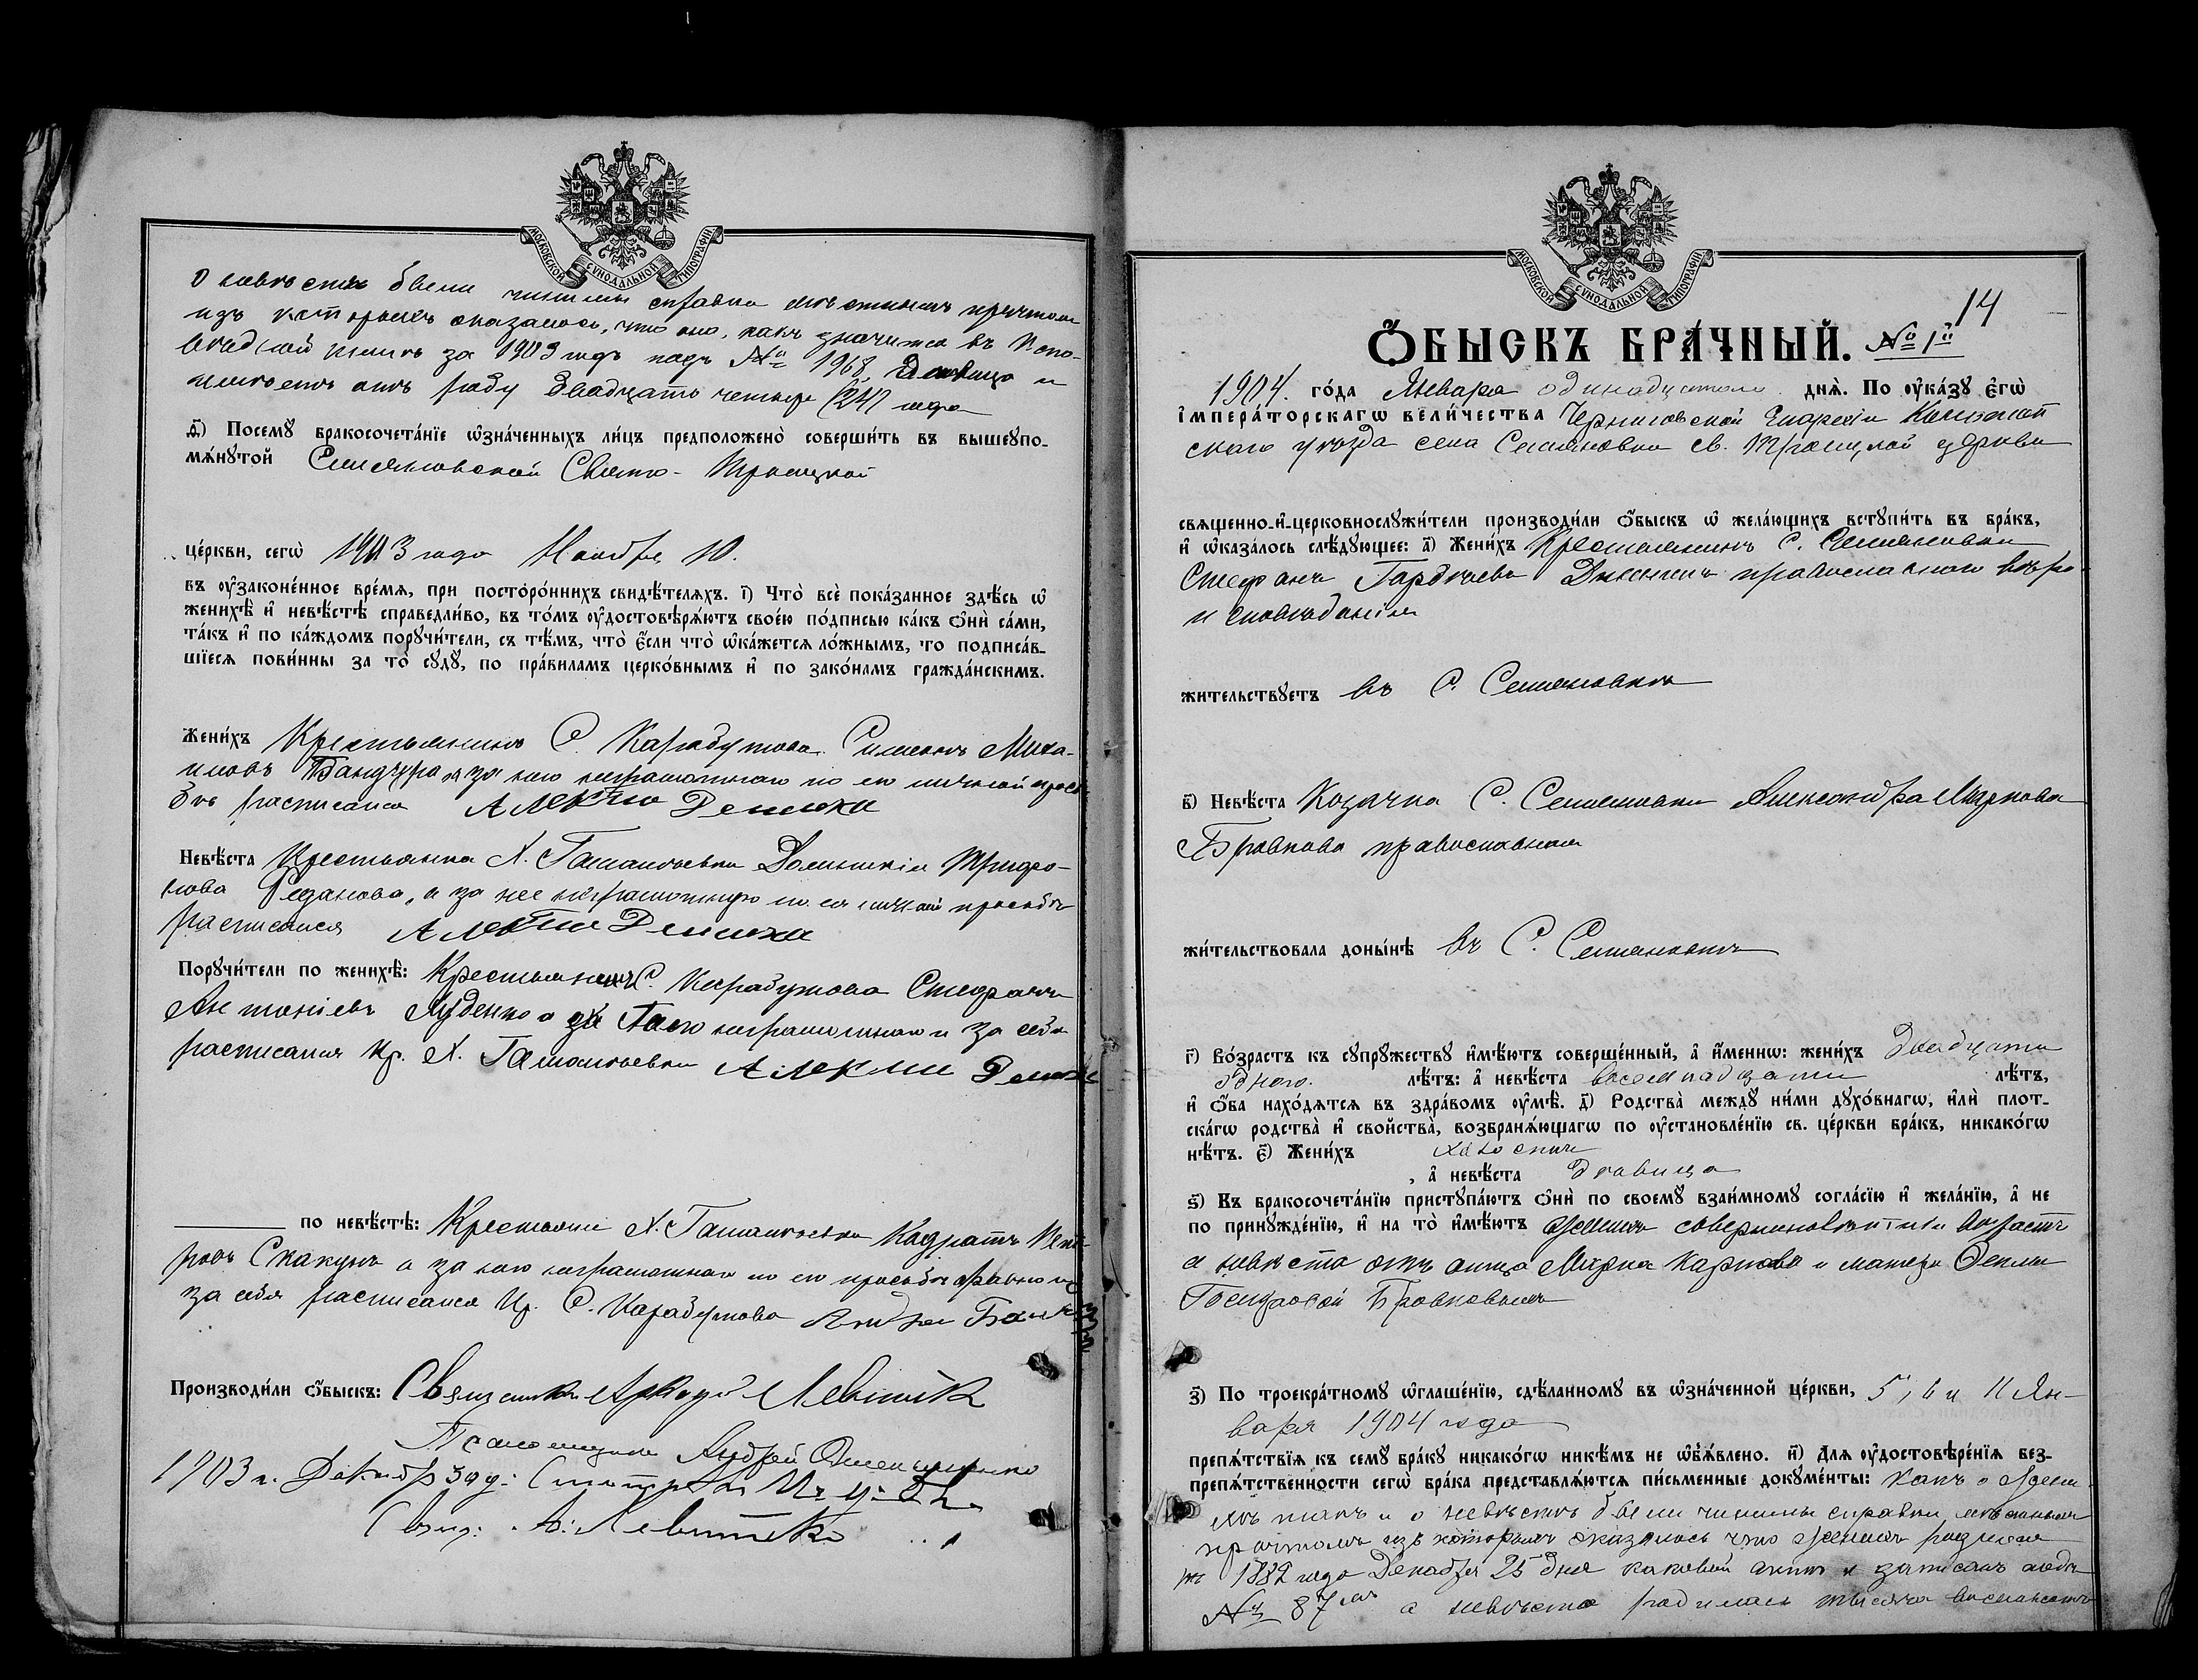 МОСКОВСКОЙ СУНОДАЛЬНОЙ ТИПОГРАФІИ
О невѣстѣ были чинимы справки мѣстнымъ причтомъ
изъ которыхъ оказалось, что она, какъ значится въ Испо-
вѣдной книгѣ за 1903 годъ подъ № 1968, дѣвица и
имѣетъ отъ роду двадцать четыре (24) года
ѳ҃) Посемꙋ̀ бракосочета́нїе ѡ҆зна́ченныхъ ли́цъ предположено̀ соверши́ть въ вышеꙋпо-
мѧ́нꙋтой Семеновской Свято-Троицкой
це́ркви, сегѡ̀ 1903 года Ноября 10.
въ ᲂу҆законе́нное вре́мѧ, при посторо́ннихъ свидѣ́телѧхъ. і҃) Что̀ всѐ пока́занное здѣ́сь ѡ҆
женихѣ̀ и҆ невѣ́стѣ справедли́во, въ то́мъ ᲂу҆достовѣрѧ́ютъ свое́ю по́дписью ка́къ ѻ҆нѝ са́ми,
та́къ и҆ по ка́ждомъ порꙋчи́тели, съ тѣ́мъ, что̀ є҆́сли что̀ ѡ҆ка́жетсѧ ло́жнымъ, то подписа́в-
шїесѧ пови́нны за то̀ сꙋдꙋ̀, по пра́виламъ церко́внымъ и҆ по зако́намъ гражда́нскимъ.
Жени́хъ Крестьянинъ С. Карабутова Симеонъ Миха-
иловъ Бандура а за него неграмотнаго по его личной прось-
бѣ росписался
Невѣ́ста Крестьянка Х. Трифо-
нова а за нее неграмотную по ея личной просьбѣ
росписался
Порꙋчи́тели по женихѣ̀: Крестьянинъ С. Карабутова Стефанъ
Антоніевъ неграмотнаго и за себя
росписался Кр. Х.
по невѣ́стѣ: Крестьяне Х. Пет-
ровъ Скакунъ а за него неграмотнаго по его просьбѣ равно и
за себя росписался Кр. С. Карабутова
Производи́ли ѻ҆́быскъ: Священникъ
Псаломщикъ Андрей
1903 г. Декабр
Свящ.
МОСКОВСКОЙ СУНОДАЛЬНОЙ ТИПОГРАФІИ
14
Ѻ҆́БЫСКЪ БРА́ЧНЫЙ. № 1й
1904. го́да Января одинадцатаго днѧ̀. По ᲂу҆ка́зꙋ є҆гѡ̀
і҆мпера́торскагѡ вели́чества Черниговской Епархіи Конотоп
скаго уѣзда села Семеновки св. Троицкой церкви
свѧщенно-и҆-церковнослꙋжи́тели производи́ли ѻ҆́быскъ ѡ҆ жела́ющихъ встꙋпи́ть въ бра́къ,
и҆ ѡ҆каза́лось слѣ́дꙋющее: а҃) Жени́хъ Крестьянинъ С. Семеновки
Стефанъ Гордѣевъ православнаго вѣро-
исповѣданія
жи́тельствꙋетъ въ С. Семеновкѣ
в҃) Невѣ́ста Козачка С. Семеновки Александра Маркова
Бровкова православная
жи́тельствовала доны́нѣ въ С. Семеновкѣ
г҃) Во́зрастъ къ сꙋпрꙋ́жествꙋ и҆мѣ́ютъ соверше́нный, а҆ и҆́меннѡ: жени́хъ двадцати
одного. лѣ́тъ: а҆ невѣ́ста восемнадцати лѣ́тъ,
и҆ ѻ҆́ба нахо́дѧтсѧ въ здра́вомъ ᲂу҆мѣ̀. д҃) Родства̀ междꙋ̀ ни́ми дꙋхо́внагѡ, и҆лѝ плот-
ска́гѡ родства̀ и҆ свойства̀, возбранѧ́ющагѡ по ᲂу҆становле́нїю св. це́ркви бра́къ, никако́гѡ
нѣ́тъ. є҃) Жени́хъ холостъ
, а҆ невѣ́ста дѣвица
ѕ҃) Къ бракосочета́нїю пристꙋпа́ютъ ѻ҆нѝ по своемꙋ̀ взаи́мномꙋ согла́сїю и҆ жела́нїю, а҆ не
по принꙋжде́нїю, и҆ на то̀ и҆мѣ́ютъ женихъ совершеннолѣтній возрастъ
а невѣста отъ отца Марка Карпова и матери Феклы
Бровковыхъ
з҃) По троекра́тномꙋ ѡ҆глаше́нїю, сдѣ́ланномꙋ въ ѡ҆зна́ченной це́ркви, 5, 6 и 11 Ян-
варя 1904 года
препѧ́тствїѧ къ семꙋ̀ бра́кꙋ никако́гѡ никѣ́мъ не ѡ҆б̾ѧ́влено. и҃) Для ᲂу҆достовѣре́нїѧ без-
препѧ́тственности сегѡ̀ бра́ка представлѧ́ютсѧ пи́сьменные докꙋме́нты: какъ о жени-
хѣ такъ и о невѣстѣ были чинимы справки мѣстнымъ
причтомъ изъ которыхъ оказалось что женихъ родился
1882 года Декабря 25 дня каковой актъ и записанъ подъ
№ 87 а невѣста родилась тысяча восемьсотъ